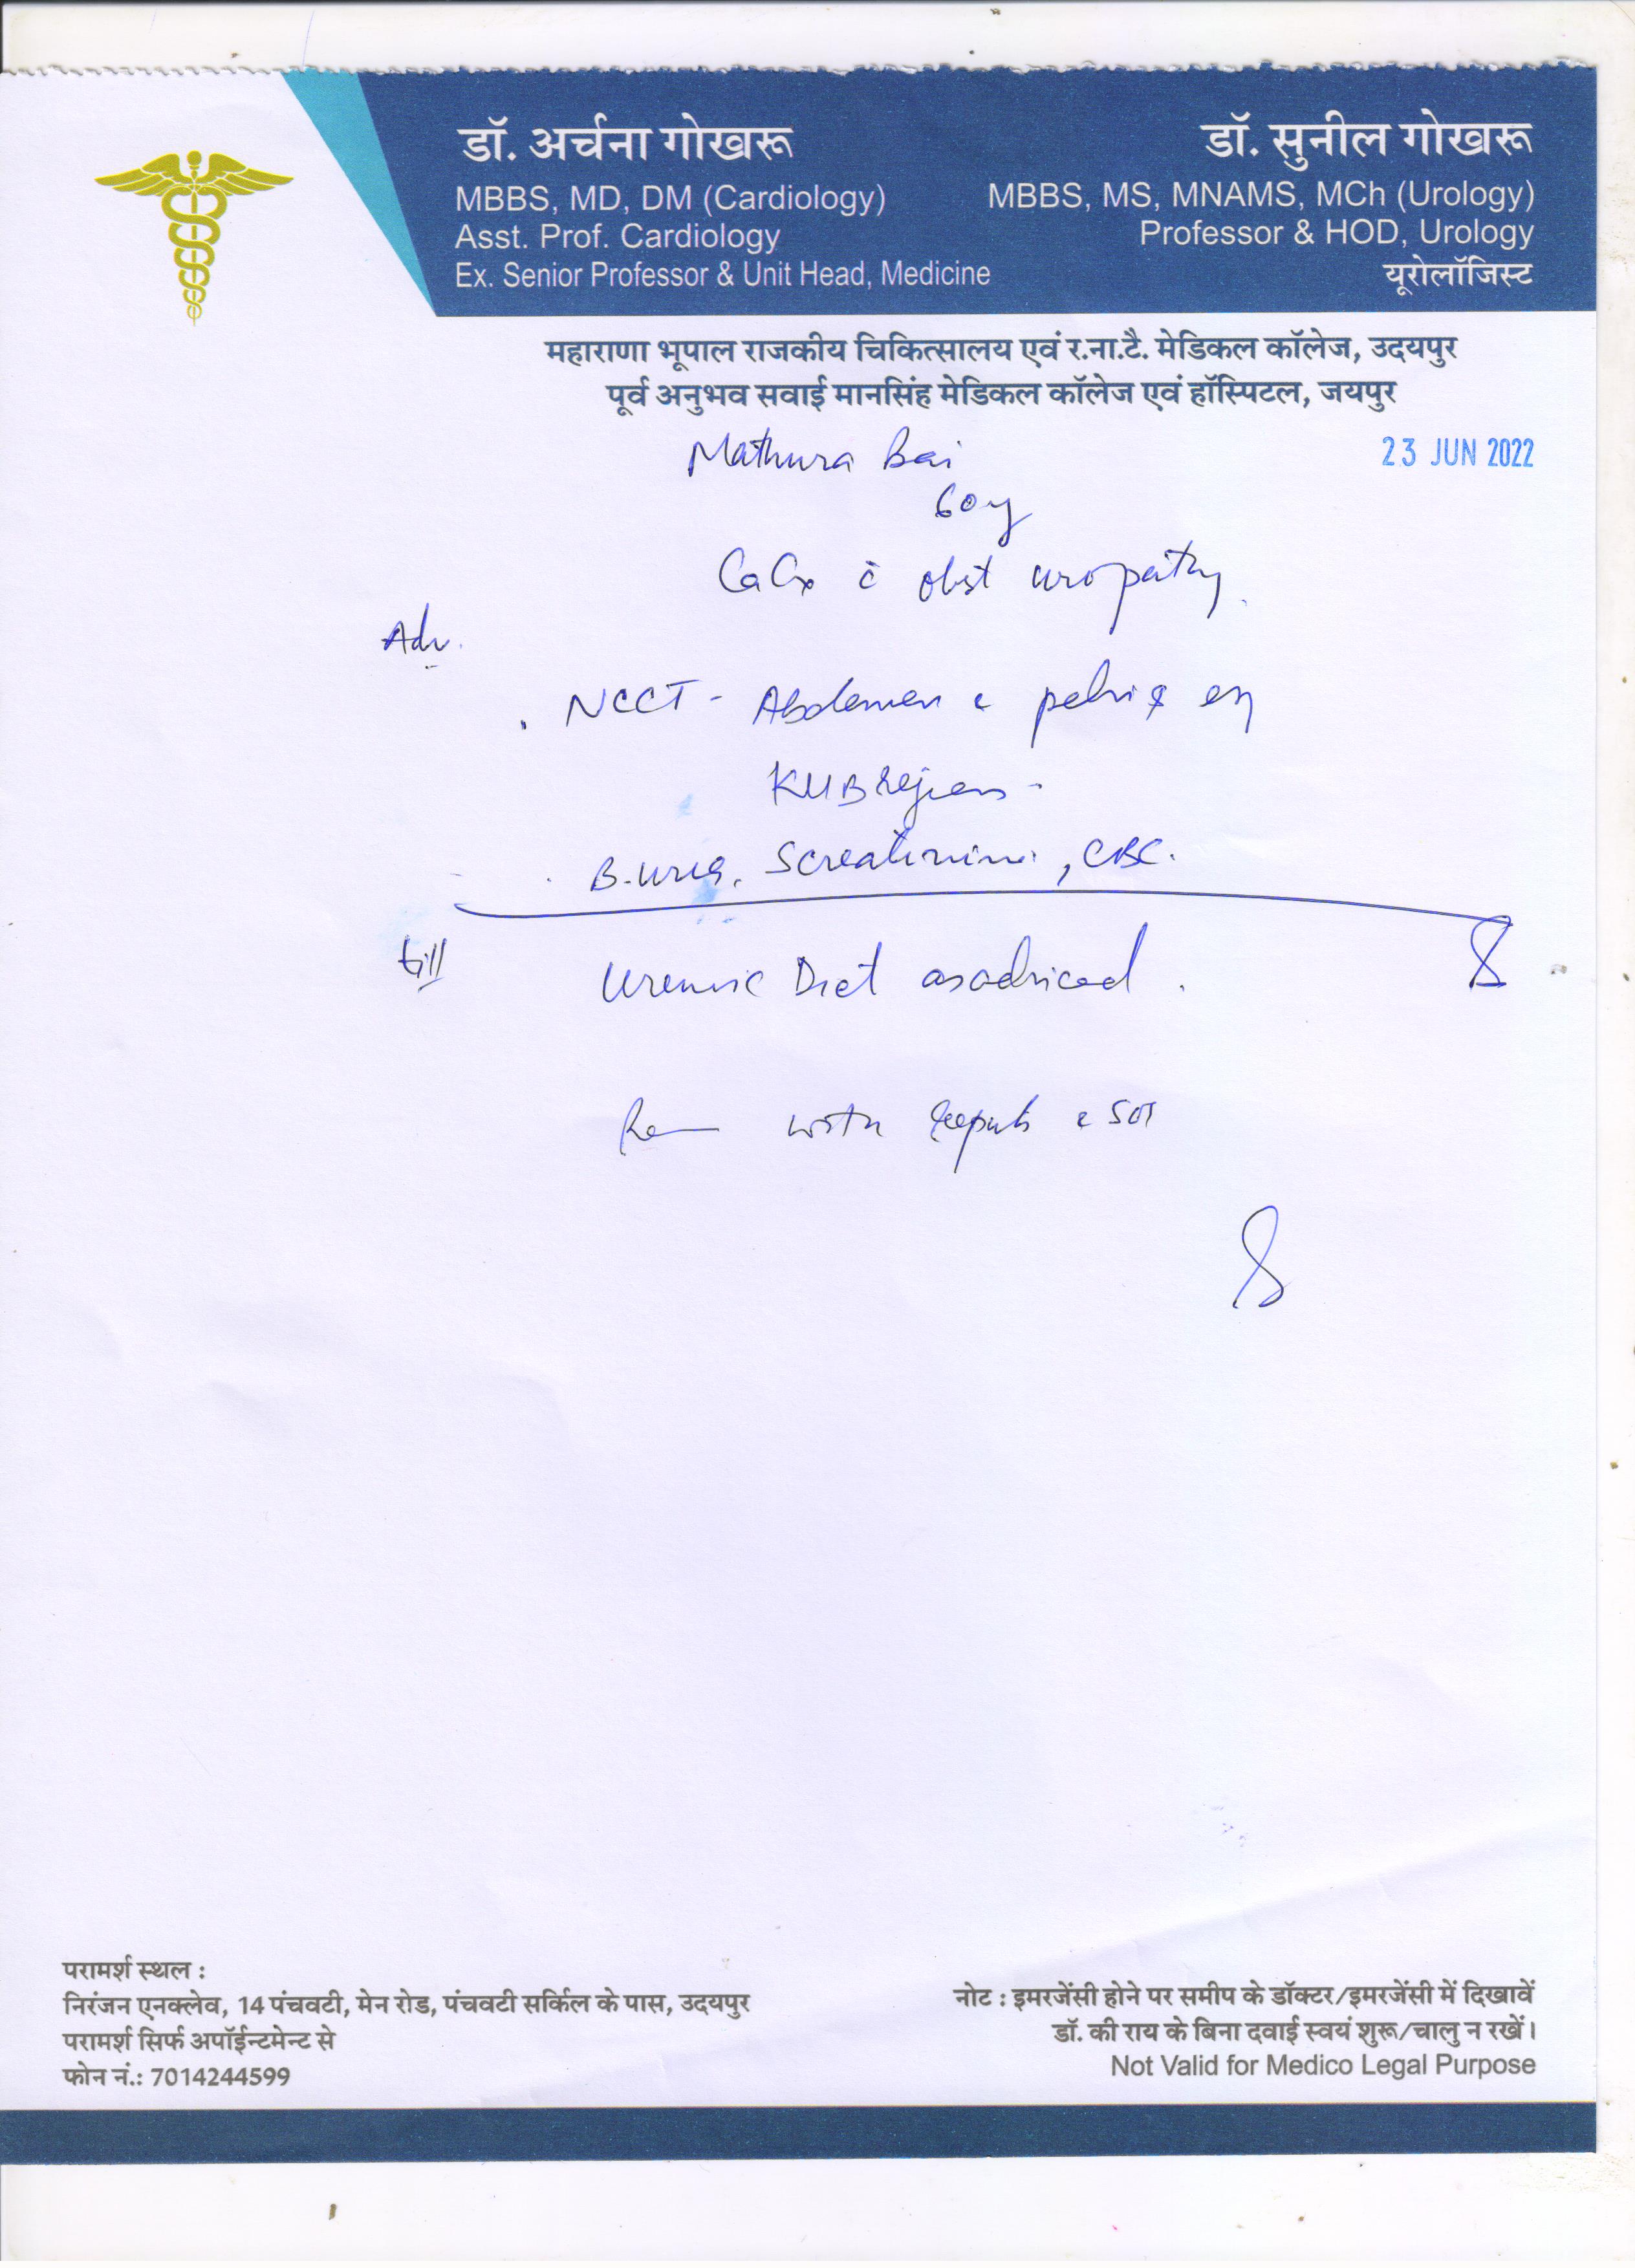 डॉ. अर्चना गोखरू
MBBS, MD, DM (Cardiology)
Asst. Prof. Cardiology
Ex. Senior Professor & Unit Head, Medicine
डॉ. सुनील गोखरू
MBBS, MS, MNAMS, MCh (Urology)
Professor & HOD, Urology
यूरोलॉजिस्ट
महाराणा भूपाल राजकीय चिकित्सालय एवं र.ना.टै. मेडिकल कॉलेज, उदयपुर
पूर्व अनुभव सवाई मानसिंह मेडिकल कॉलेज एवं हॉस्पिटल, जयपुर
23 JUN 2022
Mathura Bai
60y
CaCx c̄ obst uropathy
Adv.
NCCT - Abdomen & pelvis
KUB region -
B. urea, S creatinine, CBC.
till
Uremic Diet as adviced.
with reports
परामर्श स्थल :
निरंजन एनक्लेव, 14 पंचवटी, मेन रोड, पंचवटी सर्किल के पास, उदयपुर
परामर्श सिर्फ अपॉईन्टमेन्ट से
फोन नं.: 7014244599
नोट : इमरजेंसी होने पर समीप के डॉक्टर/इमरजेंसी में दिखावें
डॉ. की राय के बिना दवाई स्वयं शुरू/चालु न रखें।
Not Valid for Medico Legal Purpose